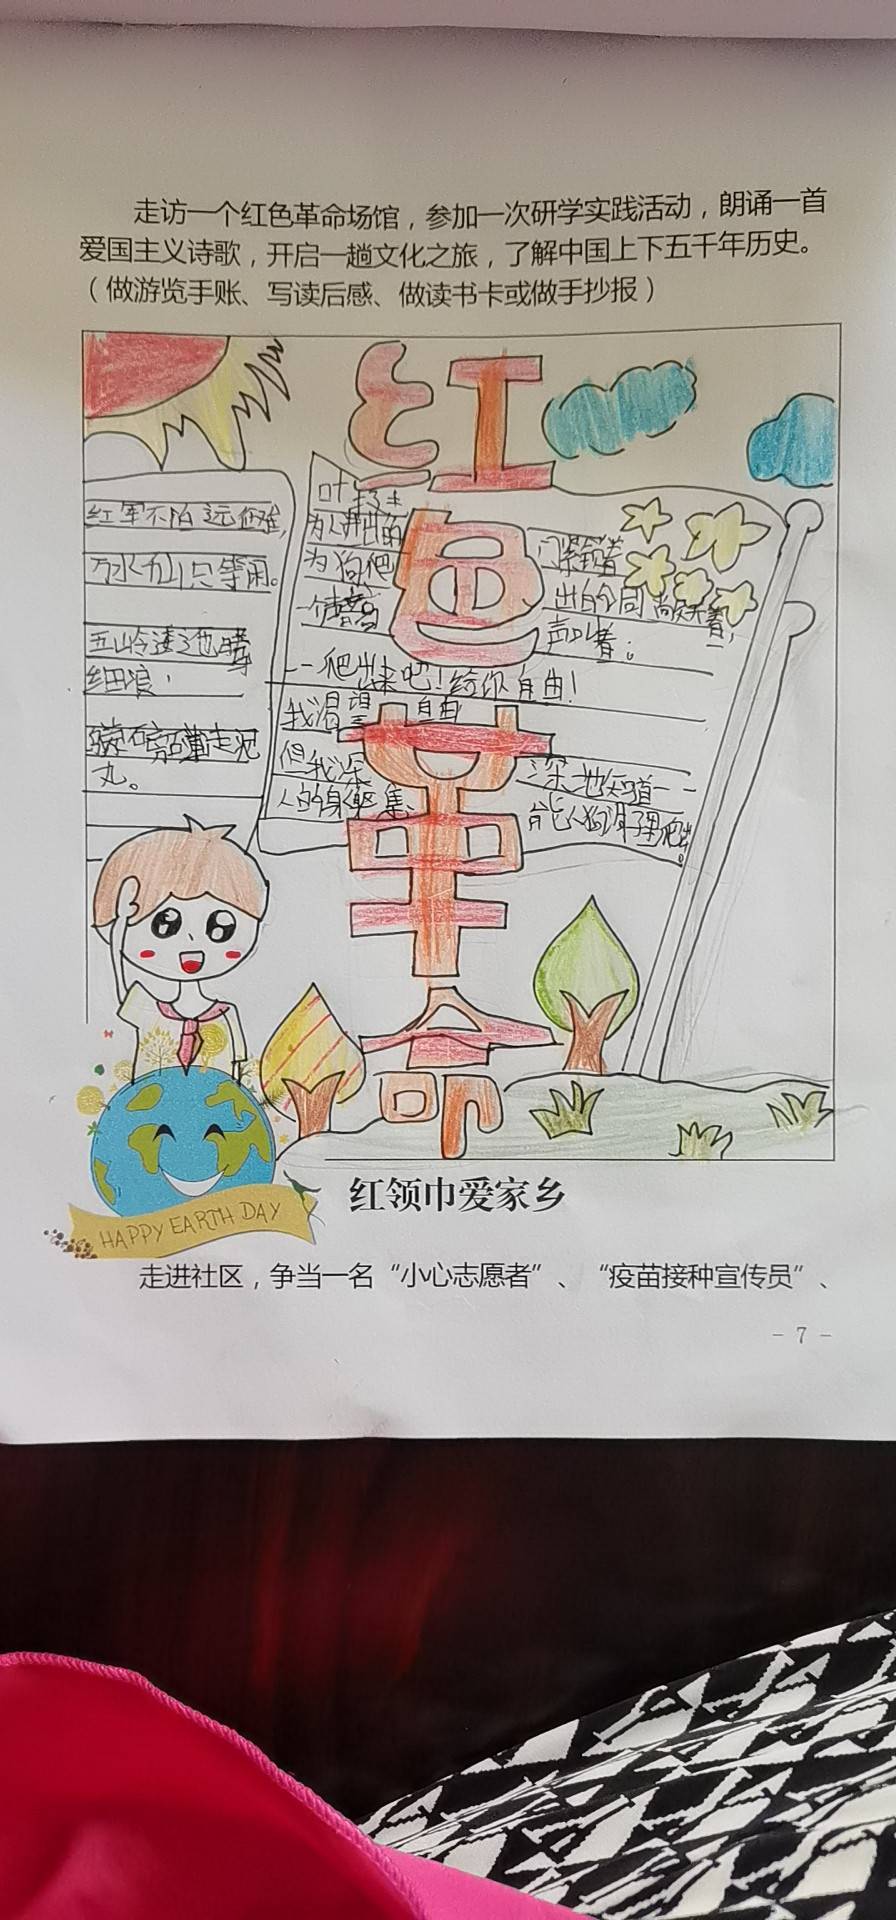 走访一个红色革命场馆，参加一次研学实践活动，朗诵一首
爱国主义诗歌，开启一趟文化之旅，了解中国上下五千年历史。
（做游览手账、写读后感、做读书卡或做手抄报）
红色革命
红军不怕远征难，
万水千山只等闲。
五岭逶迤腾
细浪，
乌蒙磅礴走泥
丸。
叶挺
为人进出的门紧锁着
为狗爬出的洞尚敞着，
一个声音高声叫着：
——爬出来吧！给你自由！
我渴望自由
但我深深地知道——
人的身躯能从狗洞子里爬出
HAPPY EARTH DAY
红领巾爱家乡
走进社区，争当一名“小心志愿者”、“疫苗接种宣传员”、
- 7 -